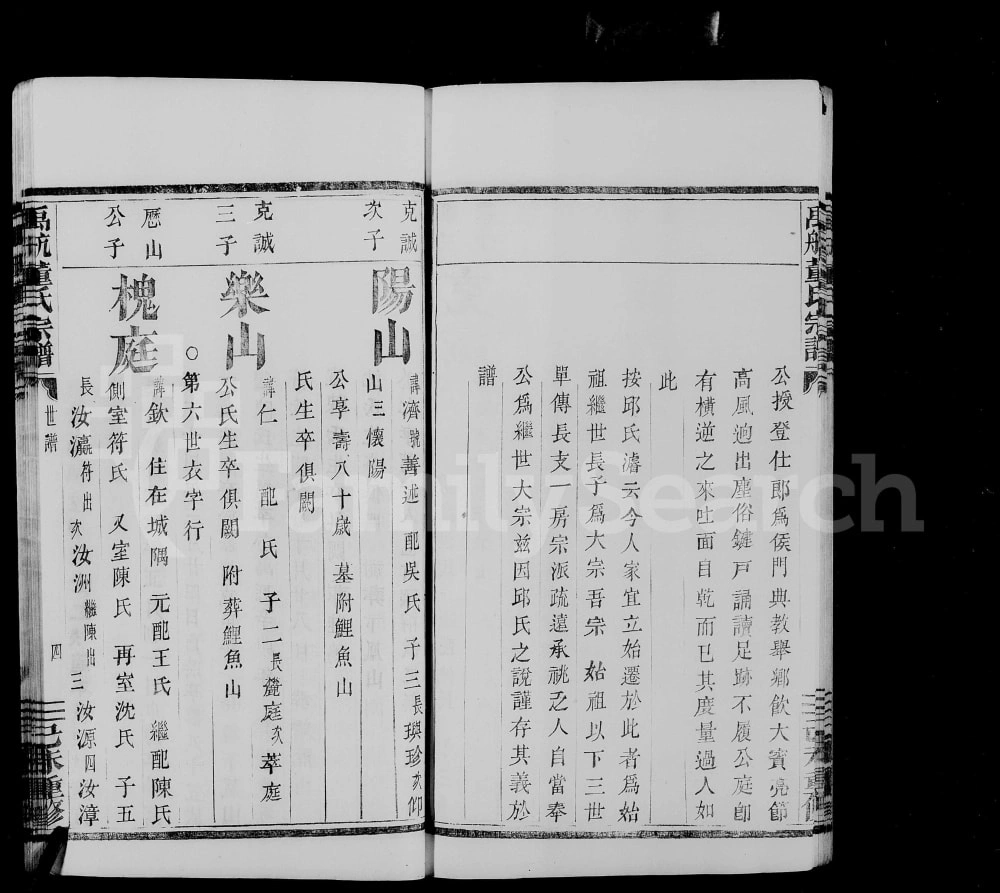 禹航董氏宗譜
公授登仕郎為侯門典教舉鄉飲大賓亮節
高風迥出塵俗鍵戸誦讀足跡不履公庭即
有橫逆之來吐面自乾而已其度量過人如
此
按邱氏濬云今人家宜立始遷於此者為始
祖繼世長子為大宗吾宗始祖以下三世
單傳長支一房宗派疏遠承祧乏人自當奉
公為繼世大宗兹因邱氏之說謹存其義於
譜
克誠次子
陽山
諱濟號善述 配吳氏 子三長璵珍次仰
山三懷陽
公享壽八十歲 墓附鯉魚山
氏生卒俱闕
克誠三子
樂山
諱仁 配 氏 子二長薲庭次萃庭
公氏生卒俱闕 附葬鯉魚山
○第六世衣字行
歷山公子
槐庭
諱欽 住在城隅 元配王氏 繼配陳氏
側室符氏 又室陳氏 再室沈氏 子五
長汝瀛符出次汝洲繼陳出三汝源四汝漳
禹航董氏宗譜
世譜
四
己未重修
FamilySearch